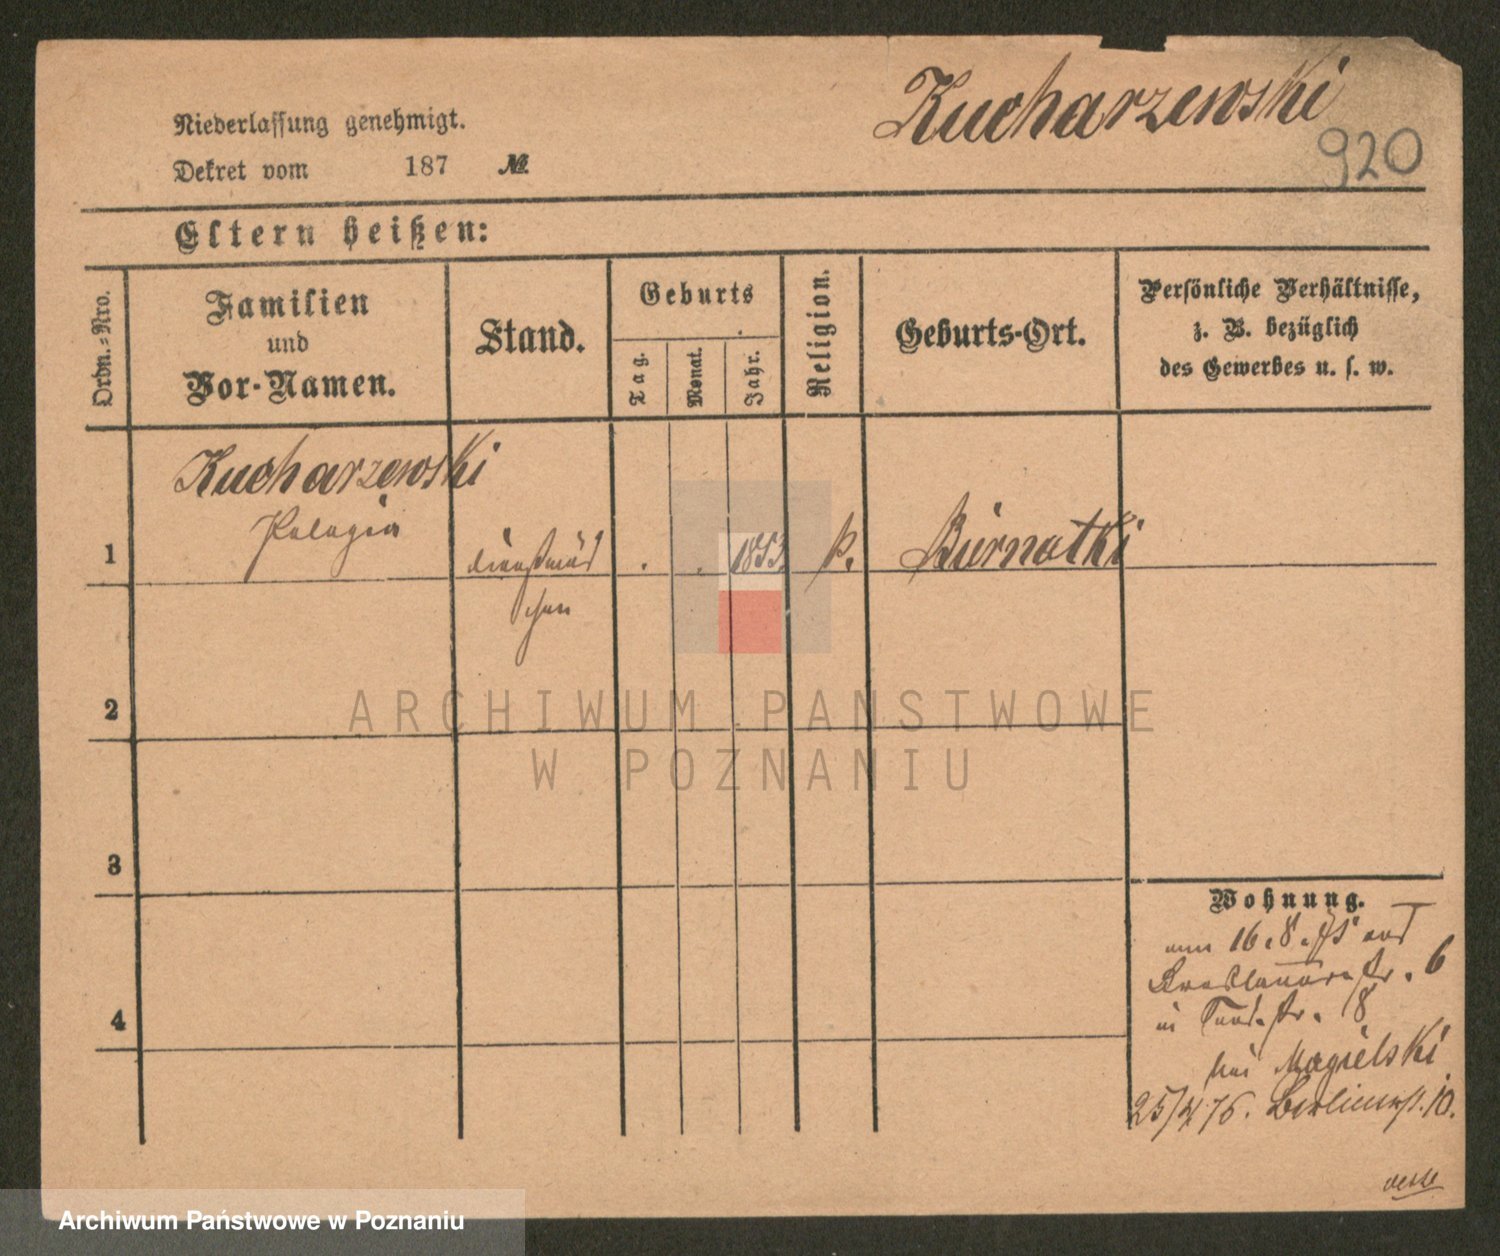 Kucharzewski
920
Niederlassung genehmigt.
Dekret vom 187 №
Eltern heißen:
Ordn.-Nro.
Familien
und
Vor-Namen.
Stand.
Geburts
Tag.
Monat.
Jahr.
Religion.
Geburts-Ort.
Persönliche Verhältnisse,
z. B. bezüglich
des Gewerbes u. s. w.
Kucharzewski
Pelagia
1 dienstmäd . . 1853 k. Biernatki
chen
2
3
4
Wohnung.
16.8.75
Breslauerstr. 6
str. 8
bei Magielski
25/4 76. Berlinerst. 10.
ARCHIWUM PAŃSTWOWE
W POZNANIU
Archiwum Państwowe w Poznaniu